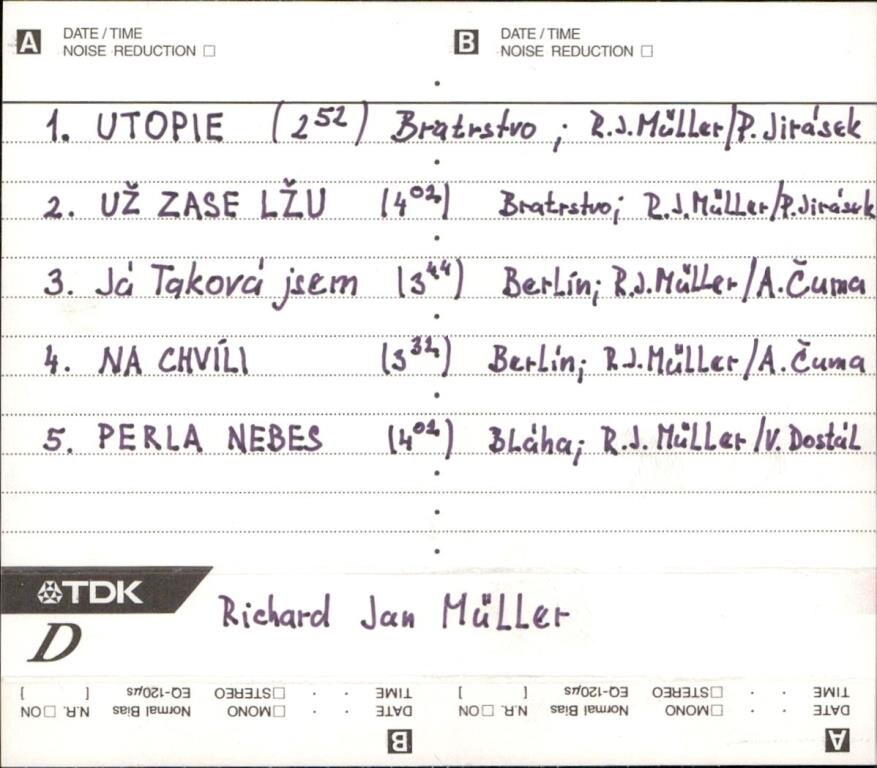 A DATE / TIME
NOISE REDUCTION □
B DATE / TIME
NOISE REDUCTION □
1. UTOPIE (2⁵²) Bratrstvo ; R.J.Müller/P. Jirásek
2. UŽ ZASE LŽU (4⁰²) Bratrstvo; R.J.Müller/P.Jirásek
3. Já Taková jsem (3⁴⁴) Berlín; R.J.Müller/A.Čuma
4. NA CHVÍLI (3³²) Berlín; R.J.Müller/A.Čuma
5. PERLA NEBES (4⁰²) Bláha; R.J.Müller/V. Dostál
TDK
D
Richard Jan Müller
A DATE · · □ MONO Normal Bias N.R. □ ON
TIME · · □ STEREO EQ-120μs [ ]
B DATE · · □ MONO Normal Bias N.R. □ ON
TIME · · □ STEREO EQ-120μs [ ]